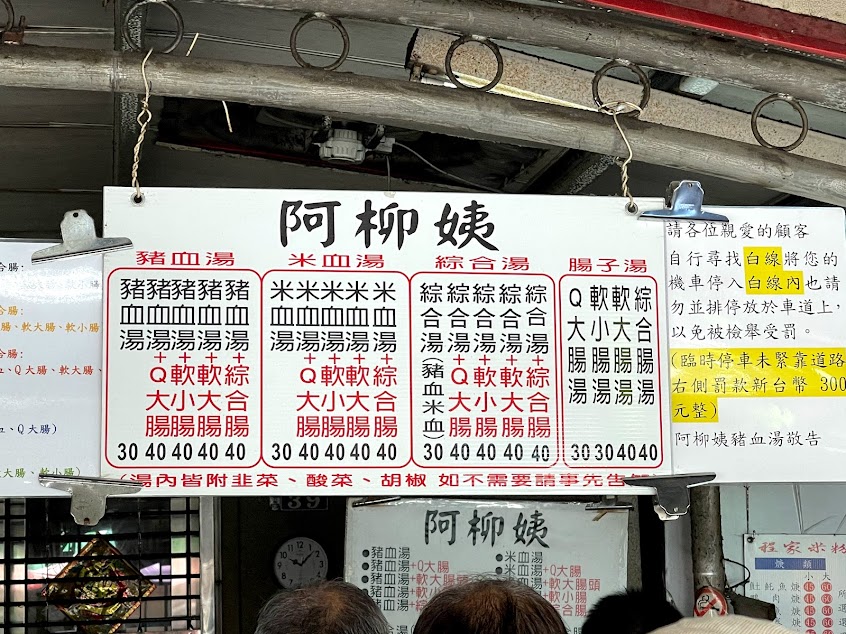 阿柳姨
豬血湯
豬血湯 30
豬血湯+Q大腸 40
豬血湯+軟小腸 40
豬血湯+軟大腸 40
豬血湯+綜合腸 40
米血湯
米血湯 30
米血湯+Q大腸 40
米血湯+軟小腸 40
米血湯+軟大腸 40
米血湯+綜合腸 40
綜合湯
綜合湯(豬血米血) 30
綜合湯+Q大腸 40
綜合湯+軟小腸 40
綜合湯+軟大腸 40
綜合湯+綜合腸 40
腸子湯
Q大腸湯 30
軟小腸湯 30
軟大腸湯 40
綜合腸湯 40
(湯內皆附韭菜、酸菜、胡椒 如不需要請事先告
請各位親愛的顧客
自行尋找白線將您的
機車停入白線內也請
勿並排停放於車道上,
以免被檢舉受罰。
(臨時停車未緊靠道路
右側罰款新台幣 300
元整)
阿柳姨豬血湯敬告
合腸:
、軟小腸
合腸:
腸、軟大腸、軟小腸
合腸:
、Q大腸、軟大腸、
、Q大腸)
大腸、軟小腸)
39
阿柳姨
豬血湯
豬血湯+Q大腸
豬血湯+軟大腸頭
豬血湯+軟小腸
豬血湯+綜合腸
米血湯
米血湯+Q大腸
米血湯+軟大腸頭
米血湯+軟小腸
程家米粉
焿類
大
小